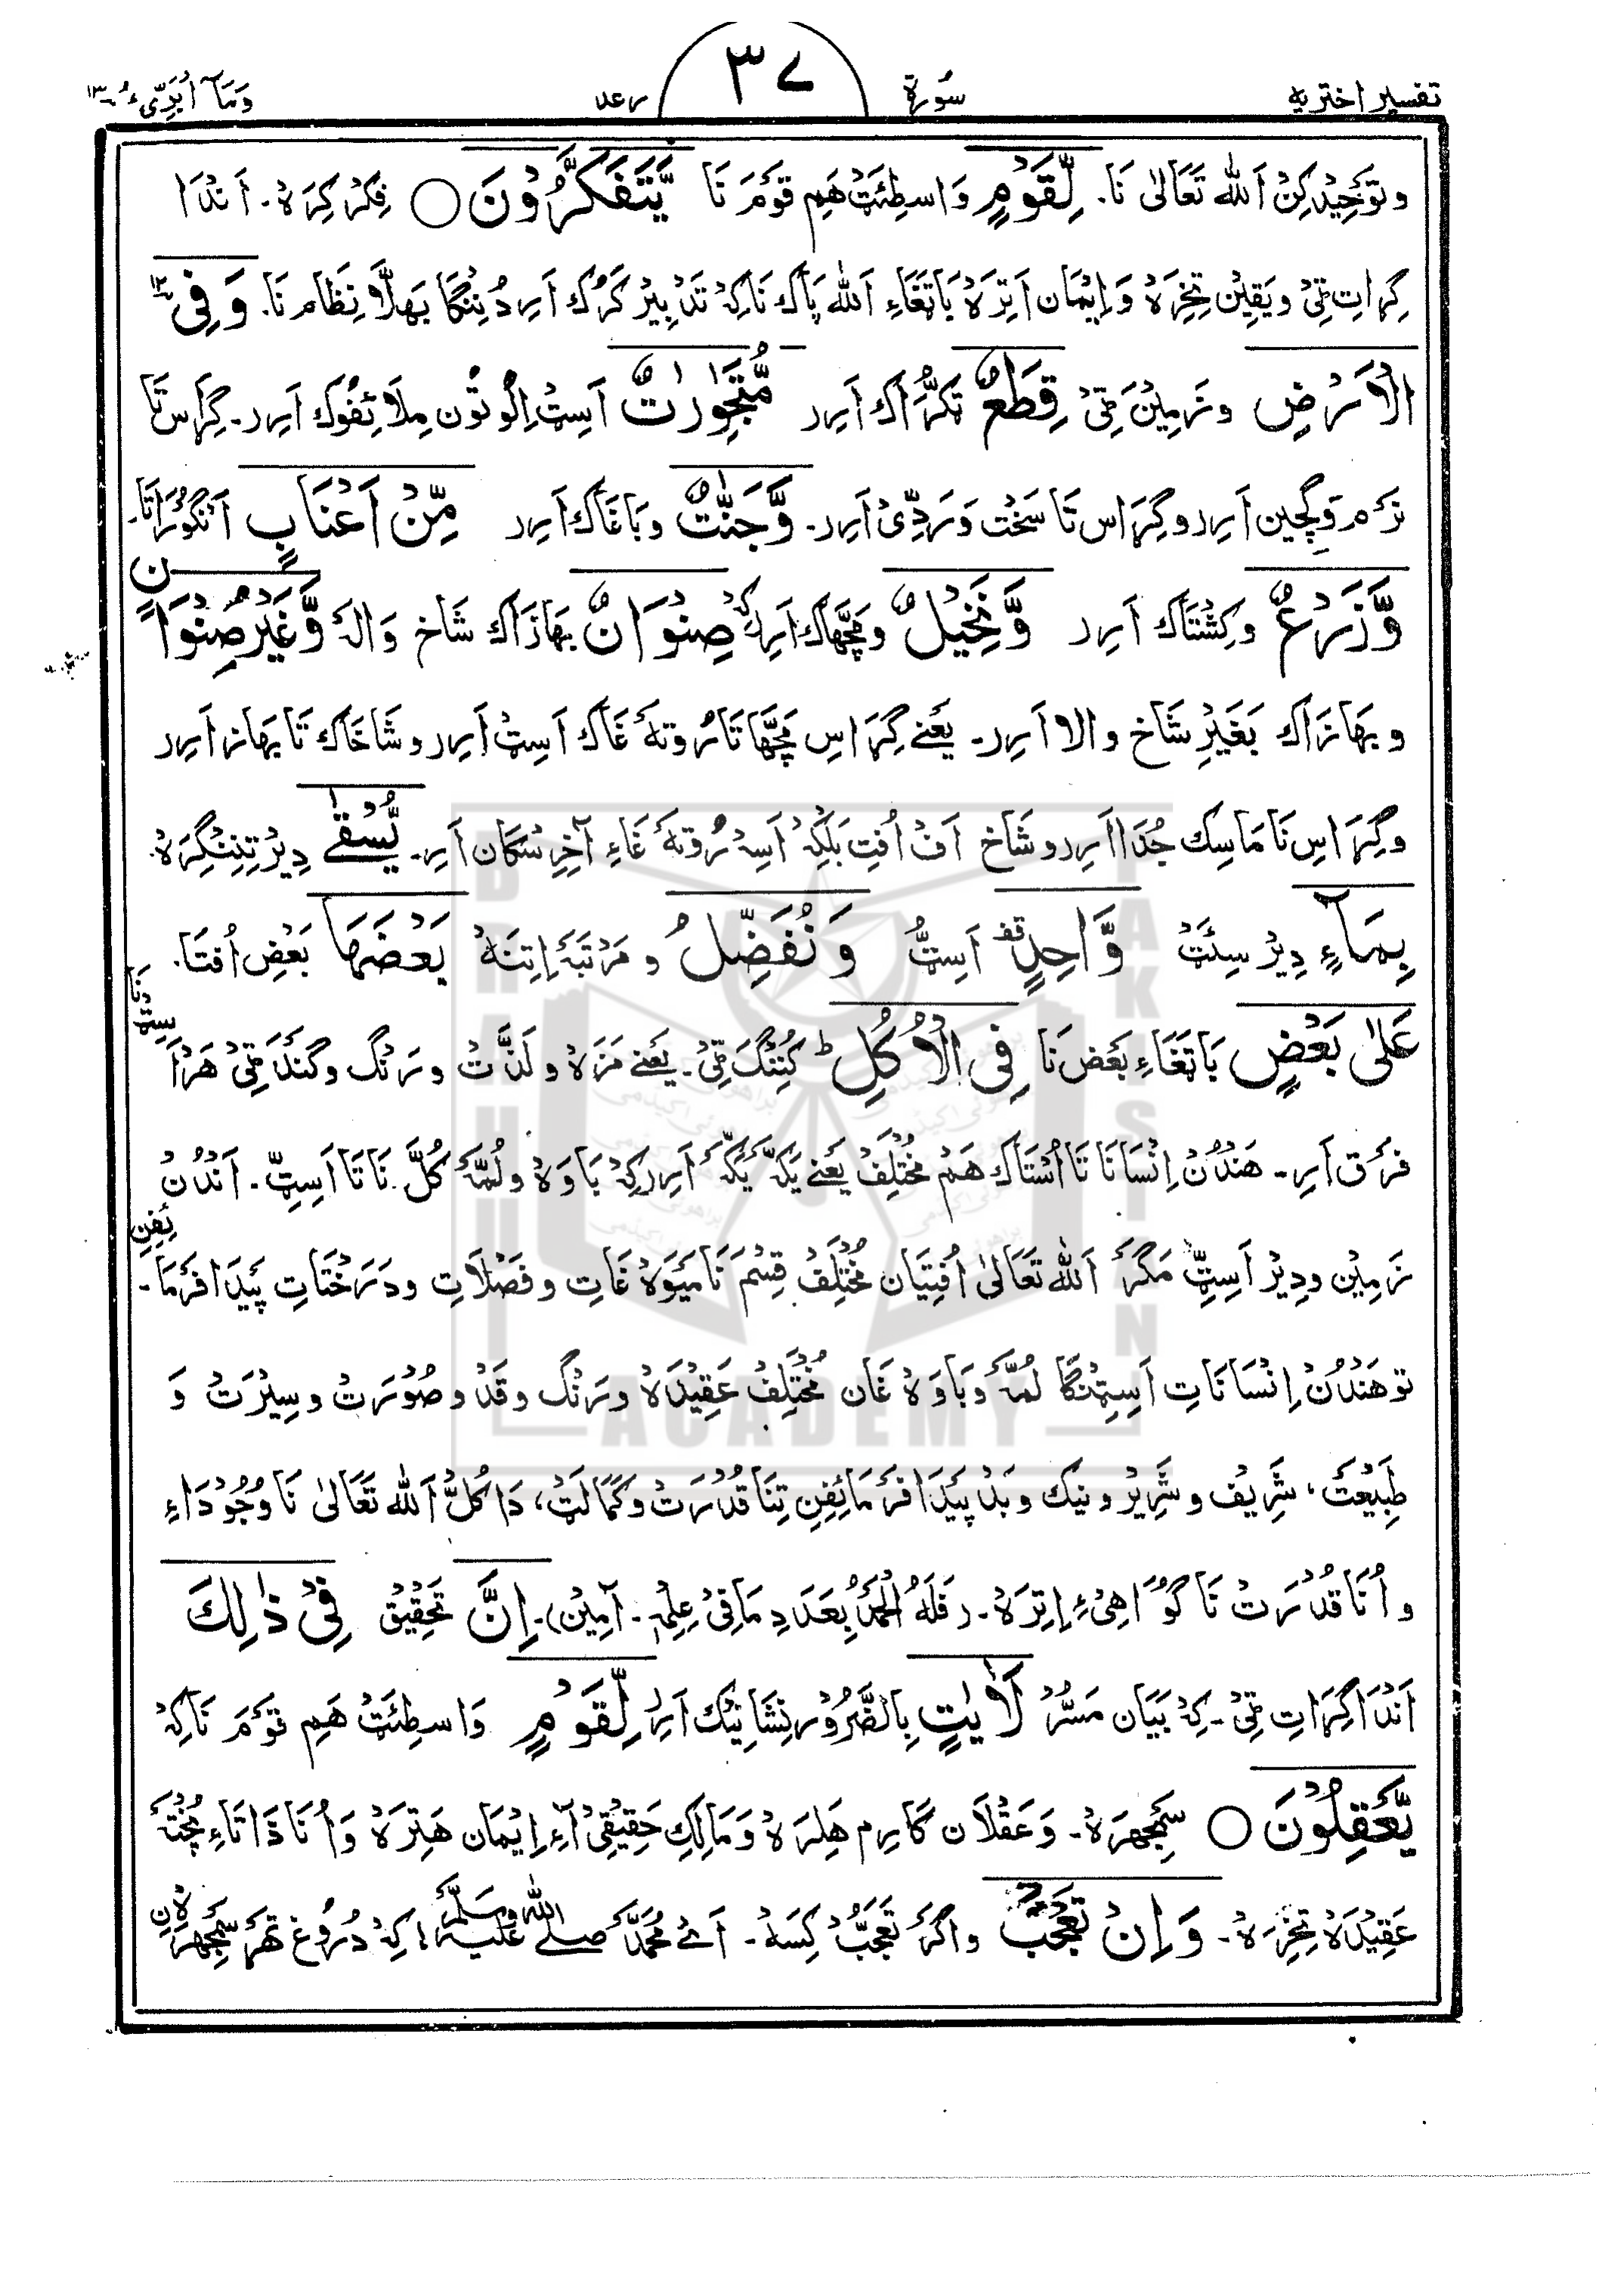 تفسیر اختریه سُورة ٣٧ رعد وَمَآ اُبَرِّیُٔ ١٣
وتَوْحِیْد کِنْ اَللّٰه تَعَالٰی نَا۔ لِّقَوْمٍ وَاسطِئَتْ هَمِ قَوْمَ نَا یَّتَفَکَّرُوْنَ ○ فِکْر کِرَهْ۔ اَنْدَا
گِرَاتِ ٹِیْ ویَقِیْن تِخِرَهْ وَاِیْمَان اَتِرَهْ بَاتَغَاءِ اَللّٰه پَاک نَا کِهْ تَدْبِیْر کَرُک اَرِ دُنْنَگا بَهلَّا نِظَام نَا۔ وَفِی
الْاَرْضِ وزَمِیْن ٹِیْ قِطَعٌ ٹُکَرَّاک اَرِر مُّتَجٰوِرٰتٌ اَسِٹ اِلُوتُون مِلَائِفُوک اَرِر۔ گِرَاس تَا
نَرْم وَگِچِین اَرِر وگِرَاس تَا سَخْت وَرَدِّیْ اَرِر۔ وَّجَنّٰتٌ وبَاغَاک اَرِر مِّنْ اَعْنَابٍ اَنْگُوْرَاتَا۔
وَّزَرْعٌ وکِشْتَاک اَرِر وَّنَخِیْلٌ ومَچَّھاک اَرِر کِهْ صِنْوَانٌ بَهَازَاک شَاخ وَالَهْ وَّغَیْرُ صِنْوَانٍ
وبَهَازَاک بَغَیْرِ شَاخ والا اَرِر۔ یَعْنے گِرَاسِ مَچَّھا تَا رُوتَهْ غَاک اَسِٹْ اَرِر وشَاخَاک تَا بَهَاز اَرِر
وگِرَاسِ نَا مَاسِک جُدَا اَرِر وشَاخ اَفْ اُفْتِ بَلْکِهْ اَسِهْ رُوتَهْ غَاءِ آخِرِسْکَان اَرِ۔ یُّسْقٰے دِیْر تِنِنْگِرَهْ
بِمَآءٍ دِیْر سِئَتْ وَّاحِدٍ قف اَسِٹُّ وَنُفَضِّلُ و مَرْتَبَهْ اِتِنَهْ بَعْضَهَا بَعْضِ اُفْتَا۔
عَلٰی بَعْضٍ بَاتَغَاءِ بَعْض نَا فِی الْاُکُلِ ط کُنِنْگ ٹِیْ۔ یَعْنے مَزَهْ و لَذَّتْ ورَنْگ وگَنْدَ ٹِیْ هَرْاَسِٹْنَا
فَرْق اَرِ۔ هَنْدُنْ اِنْسَانَاتَا اُسْتَاک هَمْ مُخْتَلِفْ یَعْنے یَکَّهْ یَکَّهْ اَرِر کِهْ بَاوَهْ ولُمَّهْ کُلَّ نَا تَا اَسِٹِّ۔ اَنْدُنْ
زَمِیْن ودِیْر اَسِٹِّ مَگَر اَللّٰه تَعَالٰی اُفْتِیَان مُخْتَلِفْ قِسْم نَا مَیْوَهْ غَاتِ وفَصْلَاتِ ودَرَخْتَاتِ پَیْدَا فَرْمَائِفِنِ۔
تو هَنْدُنْ اِنْسَانَاتِ اَسِٹِنْگَا لُمَّهْ وبَاوَهْ غَان مُخْتَلِفْ عَقِیْدَهْ ورَنْگ وقَدْ وصُوْرَتْ وسِیْرَتْ وَ
طَبِیْعَتْ، شَرِیْف وشَرِیْر ونیک وبَدْ پَیْدَا فَرْمَائِفِنِ تِنَا قُدْرَتْ وکَمَالَتْ، دَا کُلُّ اَللّٰه تَعَالٰی نَا وُجُوْدَاءِ
واُنَا قُدْرَتْ نَا گُوَاهِیْءِ اِتِرَهْ۔ (فَلَهُ الْحَمْدُ بِعَدَدِ مَا فِیْ عِلْمِهٖ۔ آمِیْن)۔ اِنَّ تَحْقِیْق فِیْ ذٰلِکَ
اَنْدَا گِرَاتِ ٹِیْ۔ کِهْ بَیَان مَسُّرْ لَاٰیٰتٍ بِالضَّرُوْر نِشَانِیْک اَرِر لِّقَوْمٍ وَاسطِئَتْ هَمِ قَوْمَ نَا کِهْ
یَّعْقِلُوْنَ ○ سَمْجِهرَهْ۔ وَعَقْلَان کَارِم هَلِرَهْ وَمَالِکِ حَقِیْقِیْ آءِ اِیْمَان هَتِرَهْ وَاُنَا ذَاتَاءِ پُخْتَهْ
عَقِیْدَهْ تِخِرَهْ۔ وَاِنْ تَعْجَبْ واگَر تَعَجُّبْ کِسَهْ۔ اَےْ مُحَمَّدْ صلے اللّٰه علَیْهِ وسَلَّم! کِهْ دُرُوْغ تهَرْ سَمْجِهرَهْ نِ